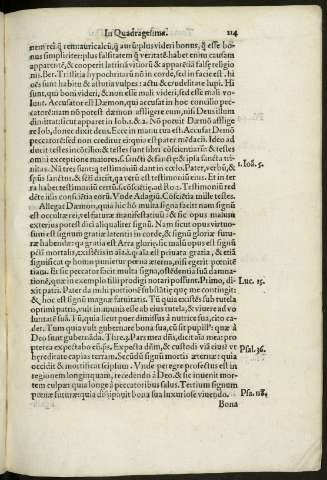 In Quadragesima. 214
nem rei q̃ rem auricalcũ, q̃ aurũ plus videri bonus, q̃ esse bo-
nus simpliciter: plus falsitatem q̃ veritatẽ habet enim causam
apparẽtẽ, & cooperit latrinã vitiorũ & apparẽtia falsę religio
nis. Ber. Tristitia hypochritarũ nõ in corde, sed in facie est. hi
oẽs sunt habitu & astutia vulpes: actu & crudelitate lupi. Hi
sunt, qui boni videri, & non esse: mali videri, sed esse mali vo-
lunt. Accusator est Dæmon, qui accusat in hoc concilio pec-
catorẽ: etiam nõ potest dæmon affligere eum, nisi Deus illum
dimittat: sicut apparet in Iob. 1. & 2. Nõ potuit Dæmõ afflige
re Iob, donec dixit deus. Ecce in manu tua est. Accusat Demõ
peccatorẽ: sed non creditur ei; quia est pater mẽdacii. Ideo ad
ducit testes inuincibiles: & testes sunt libri cõscientiarũ: & testes
omni exceptione maiores. s. sancti & sanctę: & ipsa sancta tri-
nitas. Nã tres sunt q̃ testimoniũ dant in cœlo. Pater, verbũ, &
spũs sanctus. & sctĩ dicũt, qa verũ est testimoniũ eius. Et in ter
ra habet testimoniũ certũ. s. cõsciẽtię, ad Ro. 2. Testimoniũ red
dẽte illis consciẽtia eorũ. Vnde Adagiũ. Cõsciẽtia mille testes.
Allegat Dæmon, quia hic hõ multa signa facit: nam signũ
est occultæ rei, vel futuræ manifestatiuũ: & sic opus malum
exterius potest dici aliqualiter signũ. Nam sicut opus virtuo-
sum est signum gratiæ in corde, & signũ glorię futu-
rę habendæ: qa gratia est Arra glorię, sic malũ opus est signũ
pcti mortalis, existẽtis in aĩa, q̃ aĩa est priuata gratia, & est
signũ: sicut q̃ bonus punietur pœna æterna, nisi egerit pœnitẽ
tiam. Et sic peccator facit multa signa, ostẽdentia suã damna-
tionẽ, quæ in exemplo filii prodigi notari possunt. Primo, di-
xit patri. Pater da mihi portionẽ substãtię quę me contingit:
& hoc est signũ magnæ fatuitatis. Tu quia existẽs sub tutela
optimi patris, vult in manu sua esse ab eius tutela, & viuere ad vo
luntatẽ suã. Tũ, quia sicut puer dimissus à nutrice sua, cito ca-
det. Tum quia vult gubernare bona sua, cũ sit pupill⁹: quæ à
Deo sunt gubernãda. Thre. 3. Pars mea dñs, dicit aĩa mea: pro
pterea expectabo eũ. &c. Expecta dñm, & custodi viã eius: vt
hęreditate capias terram. Secũdũ signũ mortis æternæ: quia
occidit & mortificat seipsum. Vnde peregre profectus est in
regionem longinquam, recedendo à Deo. & sic inuenit mor-
tem culpæ: quia longe à peccatoribus salus. Tertium signum
pœnæ futuræ: quia dissipauit bona sua luxuriose viuendo.
Bona
1. Ioã. 5.
Luc. 15.
Psal. 36.
Psa. 118.